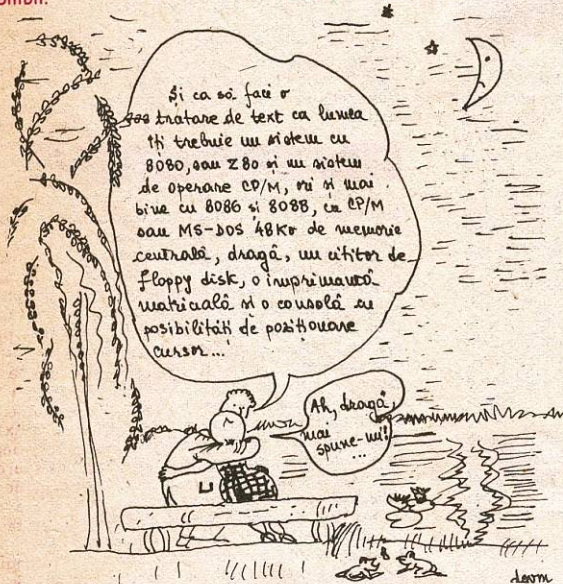 Și ca să faci o
tratare de text ca lumea
îți trebuie un sistem cu
8080, sau Z80 și un sistem
de operare CP/M, ori și mai
bine cu 8086 și 8088, cu CP/M
sau MS-DOS 48Ko de memorie
centrală, dragă, un cititor de
floppy disk, o imprimantă
matricială și o consolă cu
posibilități de poziționare
cursor...
Ah, dragă,
mai
spune-mi!
...